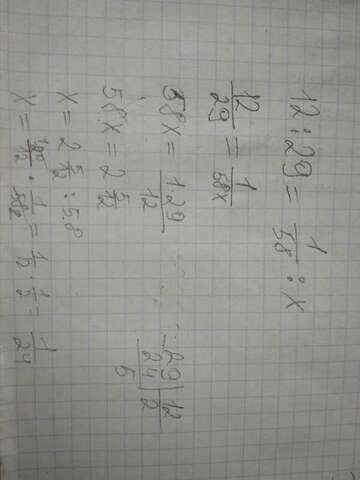 12 : 29 = 1/58 : x
12/29 = 1/58x
58x = 1·29/12
58x = 2 5/12
x = 2 5/12 : 58
x = 1/12 · 1/2 = 1/24
29 | 12
24 | 2
5